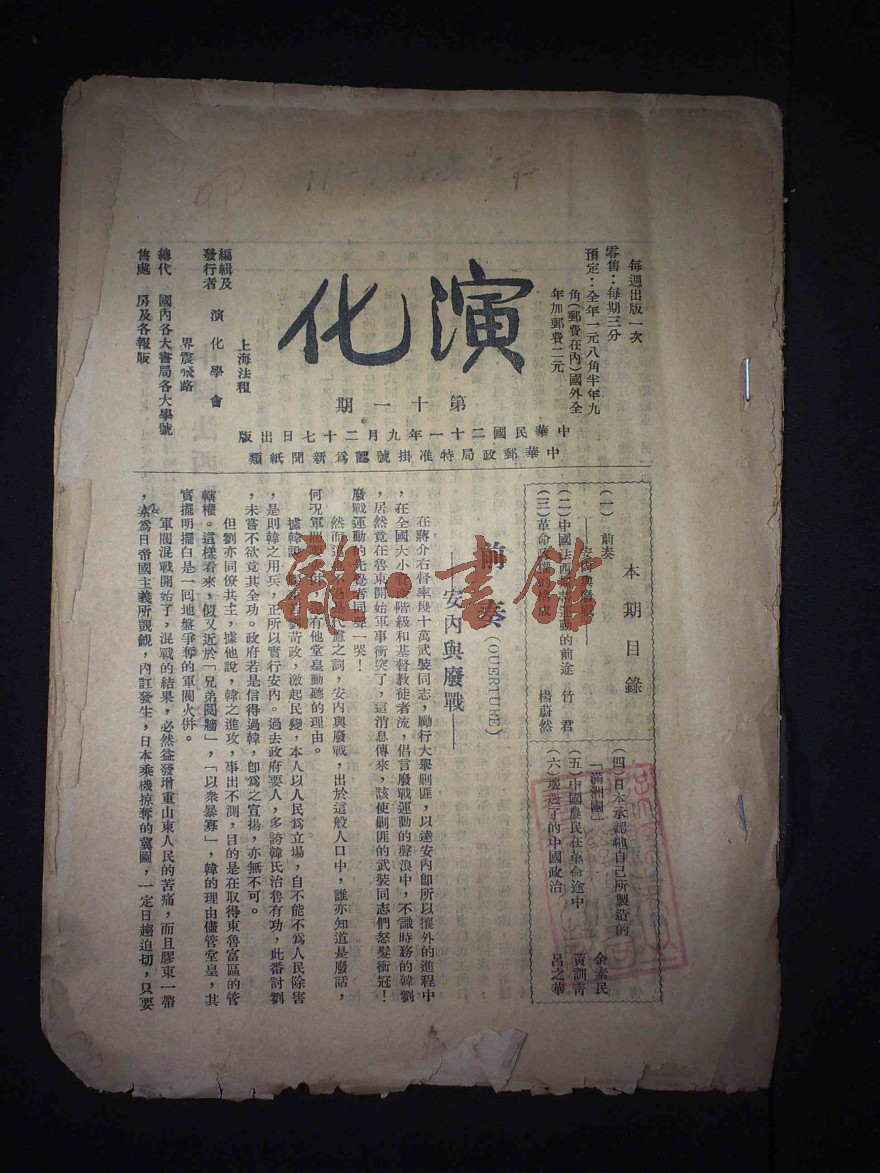 每週出版一次
零售：每期三分
預定：全年一元八角半年九
角（郵費在內）國外全
年加郵費二元
演化
第十一期
中華民國二十一年九月二十七日出版
中華郵政局特准掛號認爲新聞紙類
編輯及
發行者
演化學會
上海法租
界震飛路
總代
售處
國內各大書局各大學號
房及各報販
本期目錄
（一）前奏
——安內與廢戰——
（二）中國法西斯蒂運動的前途 竹君
（三）革命政權的 楊蔚然
（四）日本承認他自己所製造的
「滿洲國」 余素民
（五）中國農民在革命途中 黃訓靑
（六）了的中國政治 呂之華
前奏（OUERTURE）
——安內與廢戰——
在蔣介石督率幾十萬武裝同志，勵行大舉剿匪，以達安內卽所以攘外的進程中
，在全國大小資產階級和基督敎徒者流，倡言廢戰運動的聲浪中，不識時務的韓劉
，居然竟在魯東開始軍事衝突了，這消息傳來，該使剿匪的武裝同志們怒髮衝冠！
廢戰運動的先覺者同聲一哭！
然而這不過是代慮之詞，安內與廢戰，出於這般人口中，誰亦知道是廢話，
何況軍閥要 有他堂皇動聽的理由。
據韓說 劉苛政，激起民變，本人以人民爲立場，自不能不爲人民除害
，是則韓之用兵，正所以實行安內。過去政府要人，多誇韓氏治魯有功，此番討劉
，未嘗不欲竟其全功。政府若是信得過韓，卽爲之宣揚，亦無不可。
但劉亦同僚共主，據他說，韓之進攻，事出不測，目的是在取得東魯富區的管
轄權。這樣看來，似又近於「兄弟鬩牆」，「以衆暴寡」，韓的理由儘管堂皇，其
實擺明擺白是一回地盤爭奪的軍閥火併。
軍閥混戰開始了，混戰的結果，必然益發增重山東人民的苦痛，而且膠東一帶
，素爲日帝國主義所覬覦，內訌發生，日本乘機掠奪的冀圖，一定日趨迫切，只要
雜·書館